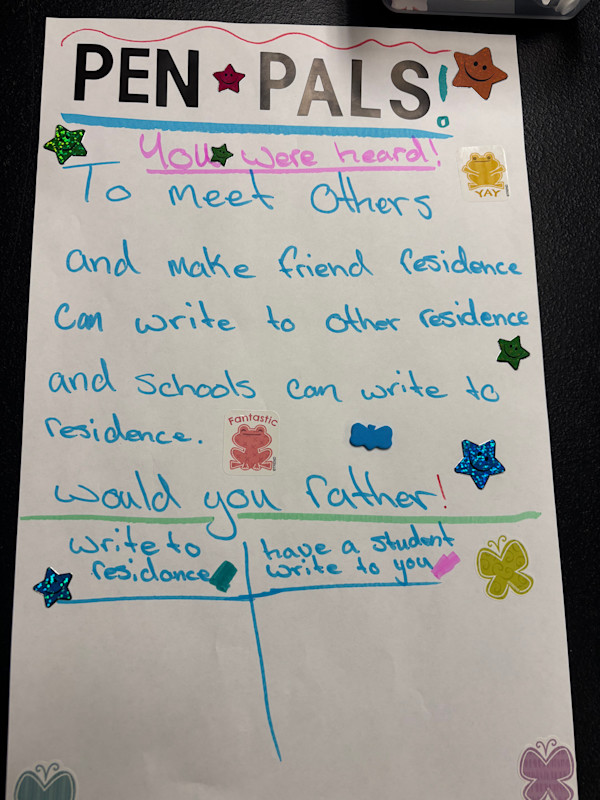 PEN PALS!
You were heard!
YAY
To Meet Others
and make friend residence
Can write to other residence
and schools can write to
residence.
Fantastic
would you rather!
write to
residance
have a student
write to you